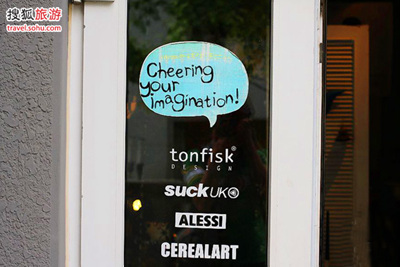 搜狐旅游
travel.sohu.com
Cheering
your
imagination!
tonfisk®
DESIGN
suck UK
ALESSI
CEREALART